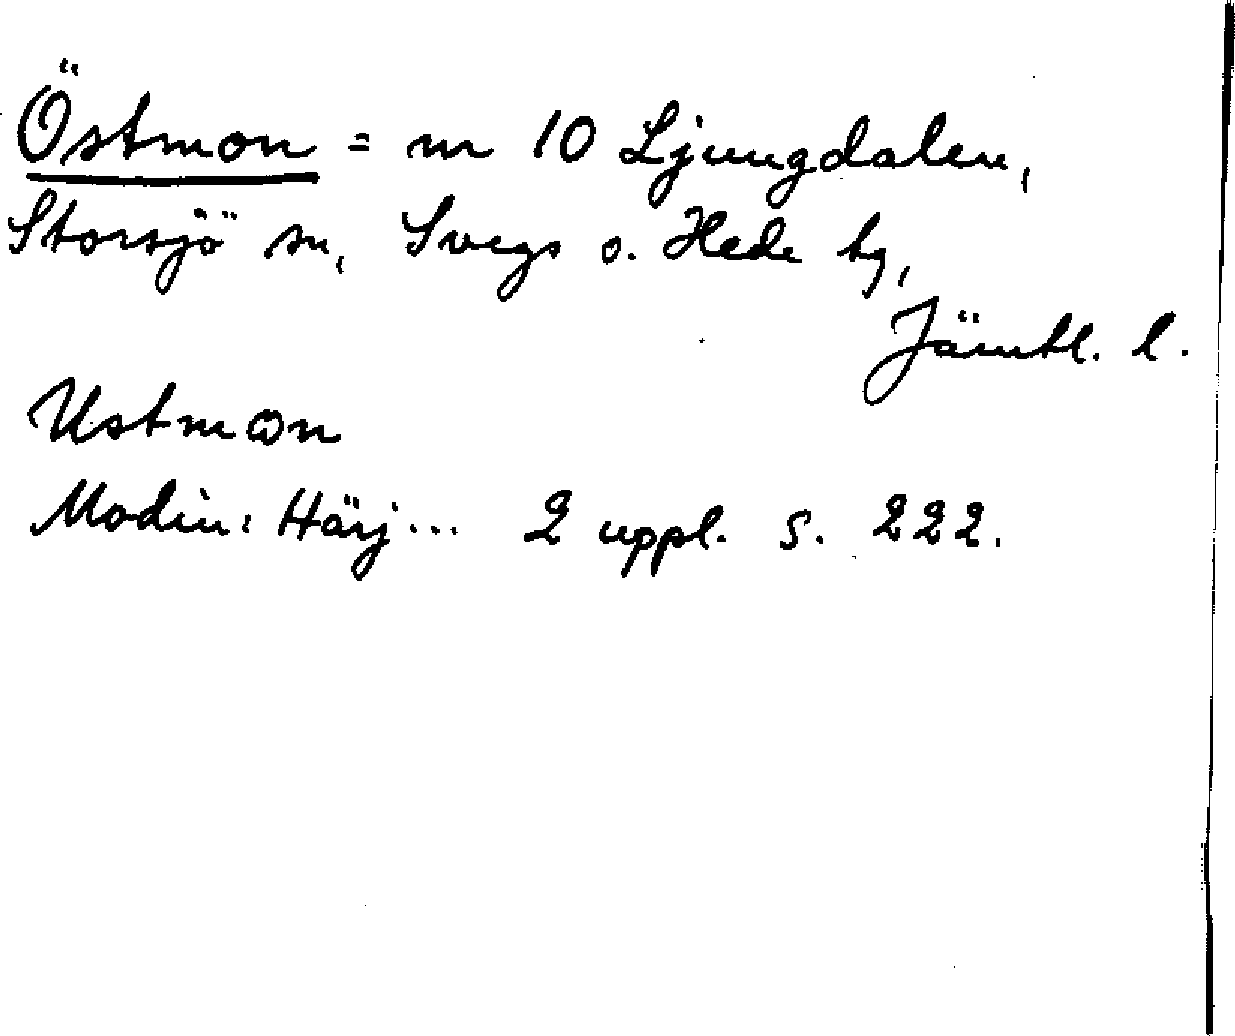 Östmon = nr 10 Ljungdalen,
Storsjö sn, Svegs o. Hede tg,
Jämtl. l.
Ustmon
Modin: Härj... 2 uppl. s. 222.